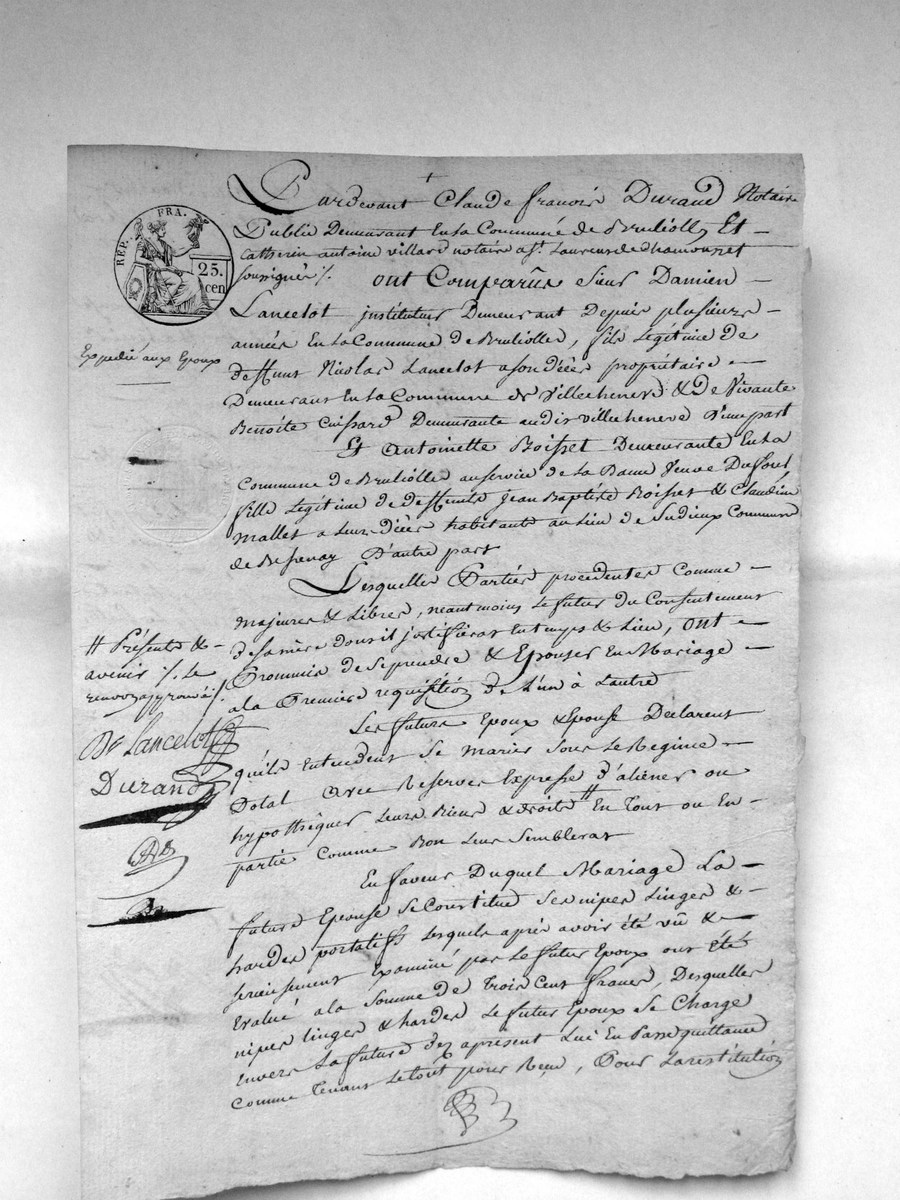 REP. FRA.
25.
cen
Pardevant Claude francois Durand Notaire
Public Demeurant En la Commune de Brulliolle Et
Catherin antoine villard notaire a St. Laurens de Chamousset
soussignés ont Comparûs Sieur Damien
Lancelot jnstituteur Demeurant Depuis plusieurs
années En la Commune de Brulliolle, fils Légitime de
deffunt Nicolas Lancelot a son décès propriétaire
Demeurant En la Commune de Villechenève & de Vivante
Benoite Cuissard Demeurante audit villechenève D'une part
Et Antoinette Boisset Demeurante En la
Commune de Brulliolle au service de la Dame Veuve Dufour,
fille Légitime de deffunts Jean Baptiste Boisset & Claudine
Mallet a Leur décès habitants au Lieu de Sudieux Commune
de Bessenay D'autre part
Lesquelles Parties procédentes Comme
majeures & Libres, neantmoins Le futur du Consentement
de sa mère dont il justifierat En temps & Lieu, ont
Prommis de Se prendre & Epouser En Mariage
a la Première requisition de L'un à L'autre
Les futurs Epoux & Epouse Déclarent
quils Entendent Se Marier Sous Le Régime
Dotal avec Reserve Expresse d'aliéner ou
hypothéquer Leurs Biens & droits # En Tout ou En
partie Comme Bon Leur Semblerat
En faveur Duquel Mariage La
future Epouse Se Constitue Ses nipes Linges &
hardes portatifs Lesquels après avoir été vû &
serieusement Examiné par Le futur Epoux ont été
Evalué a la Somme de Trois Cent francs, Desquelles
nipes linges & hardes Le futur Epoux Se Charge
envers La future dez apresent Lui En Passe quittance
comme Tenant Le tout pour Reçu, Pour La restitution
Expedié aux Epoux
# Présents &
avenir /. Le
renvoy approuvé /.
Dn Lancelot
Durand